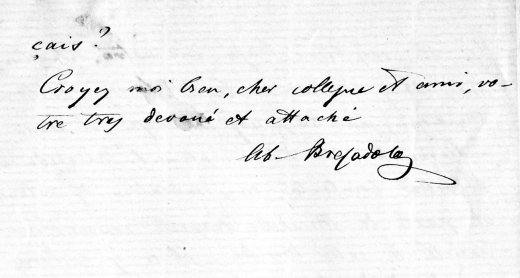 çais?
Croyez moi bien, cher collegue et ami, vo-
tre tres devoué et attaché
Ab Bresadola